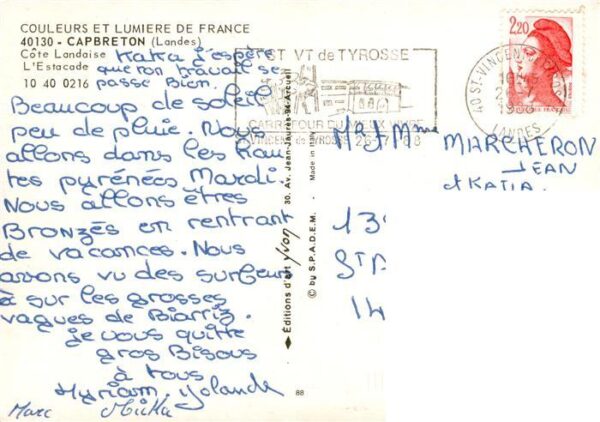 COULEURS ET LUMIERE DE FRANCE
40130 - CAPBRETON (Landes)
Côte Landaise
L'Estacade
10 40 0216
Katia j'espère
que ton travail se
passe Bien.
Beaucoup de soleil
peu de pluie. Nous
allons dans les Hau
tes pyrénées Mardi.
Nous allons êtres
Bronzés en rentrant
de vacances. Nous
avons vu des surfeur
à sur les grosses
vagues de Biarriz.
je vous quitte
gros Bisous
à tous
Myriam. Yolande
Marc
88
Editions d'art yvon
30, Av. Jean-Jaurès-94-Arcueil
© by S.P.A.D.E.M.
Made in Italy
ST VT de TYROSSE
2,20
40 ST-VINCENT
LANDES
Mr & Mme MARCHERON
JEAN
& KATIA.
13
ST
14